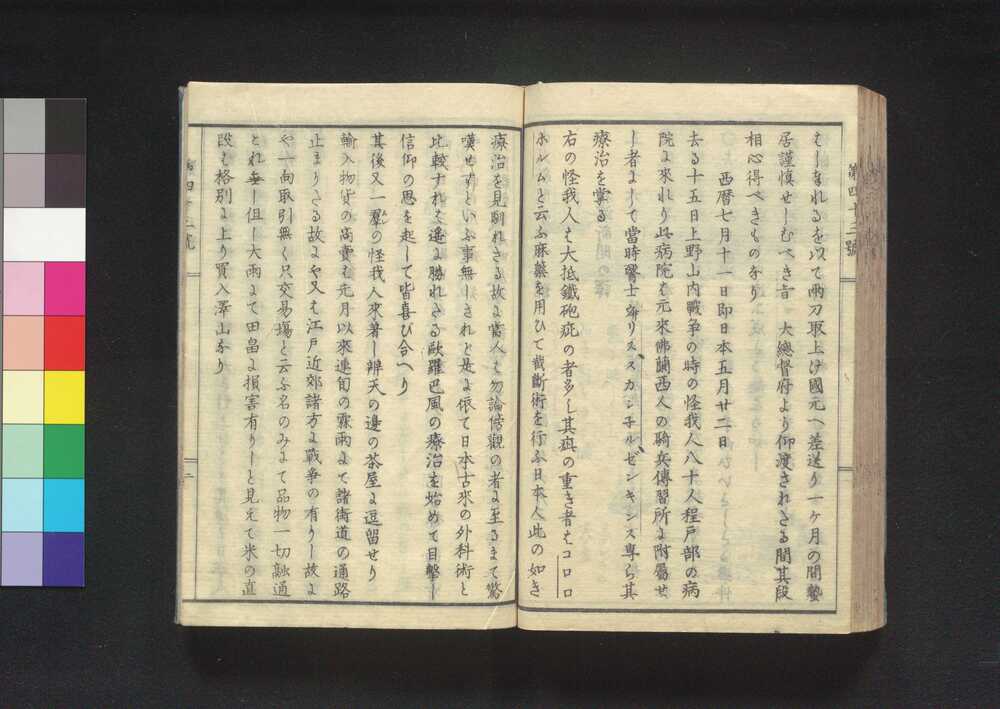 むしなれるを以て両刀取上げ國元へ差送り一ケ月の間蟄
居謹慎せしむべき旨 大總督府より仰渡されさる間其段
相心得べきものなり
西暦七月十一日即日本五月廿二日
去る十五日上野山内戰争の時の怪我人八十人程戸部の病
院に來れり此病院は元來佛蘭西人の騎兵傳習所に附屬せ
し者にして當時醫士
療治を掌る
右の怪我人は大抵鐵砲疵の者多し其疵の重き者はコロロ
ホルムと云ふ麻藥を用ひて截斷術を行ふ日本人此の如き
療治を見馴れさる故に當人は勿論傍觀の者に至るまて驚
嘆せずといふ事無しされど是に依て日本古來の外科術と
比較すれは遙に勝れさる歐羅巴風の療治を始めて目撃し
信仰の思を起して皆喜び合へり
其後又一羣の怪我人來著し辨天の邊の茶屋に逗留せり
輸入物貨の商賣も先月以來連旬の霖雨にて諸街道の通路
止まりさる故にや又は江戸近郊諸方に戰争の有りし故に
や一向取引無く只交易塲と云ふ名のみにて品物一切融通
とれ無し但し大雨にて田畠に損害有りしと見えて米の直
段は格別に上り買入澤山なり
第四十三號
二